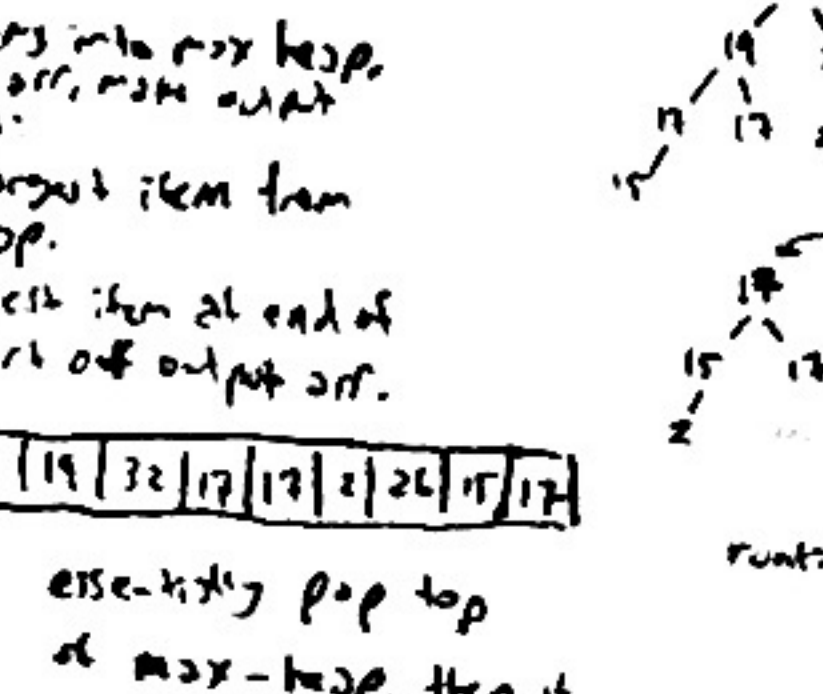 into max heap.
arr, make output
item from
item at end of
off output arr.
19 32 17 17 2 26 15 17
essentially pop top
of max-heap then it
19
17 17
15
17
15 17
2